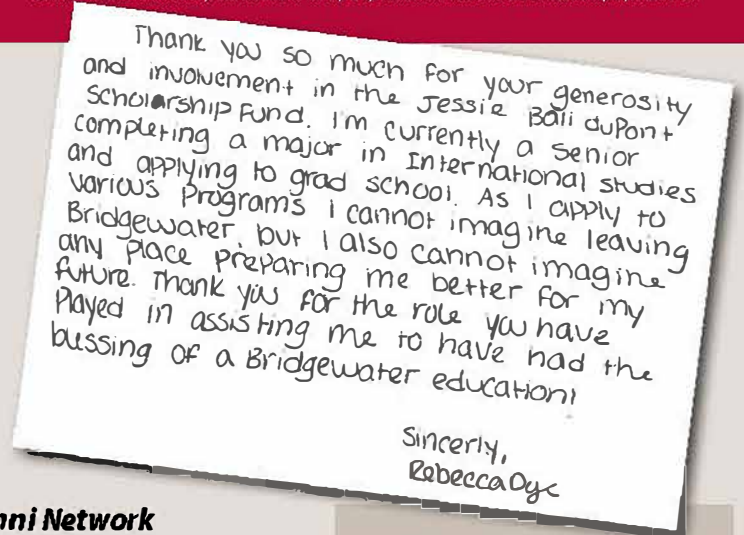 Thank you so much for your generosity
and involvement in the Jessie Ball duPont
Scholarship Fund. I'm currently a senior
completing a major in International studies
and applying to grad school. As I apply to
various programs I cannot imagine leaving
Bridgewater, but I also cannot imagine
any place preparing me better for my
future. Thank you for the role you have
played in assisting me to have had the
blessing of a Bridgewater education!
Sincerly,
Rebecca Dyc
nni Network